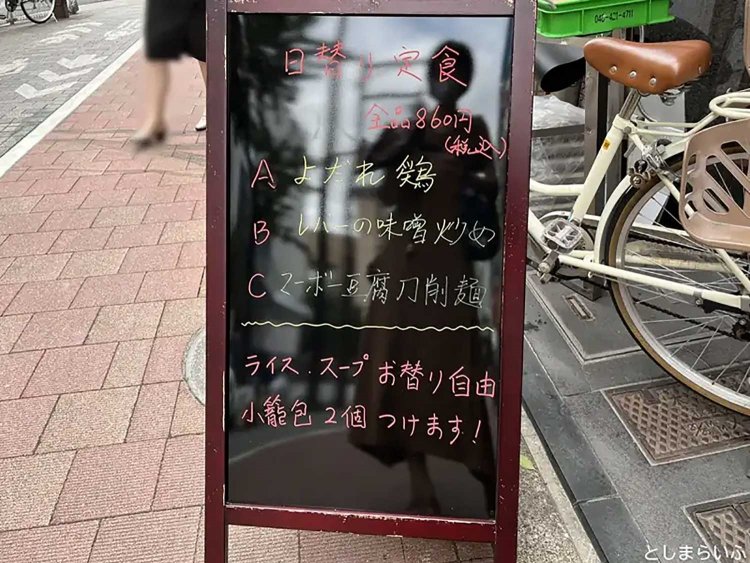 日替り定食
全品860円
(税込)
A よだれ鶏
B レバーの味噌炒め
C マーボー豆腐刀削麺
ライス.スープ お替り自由
小籠包 2個 つけます!
046-421-4711
としまらいふ